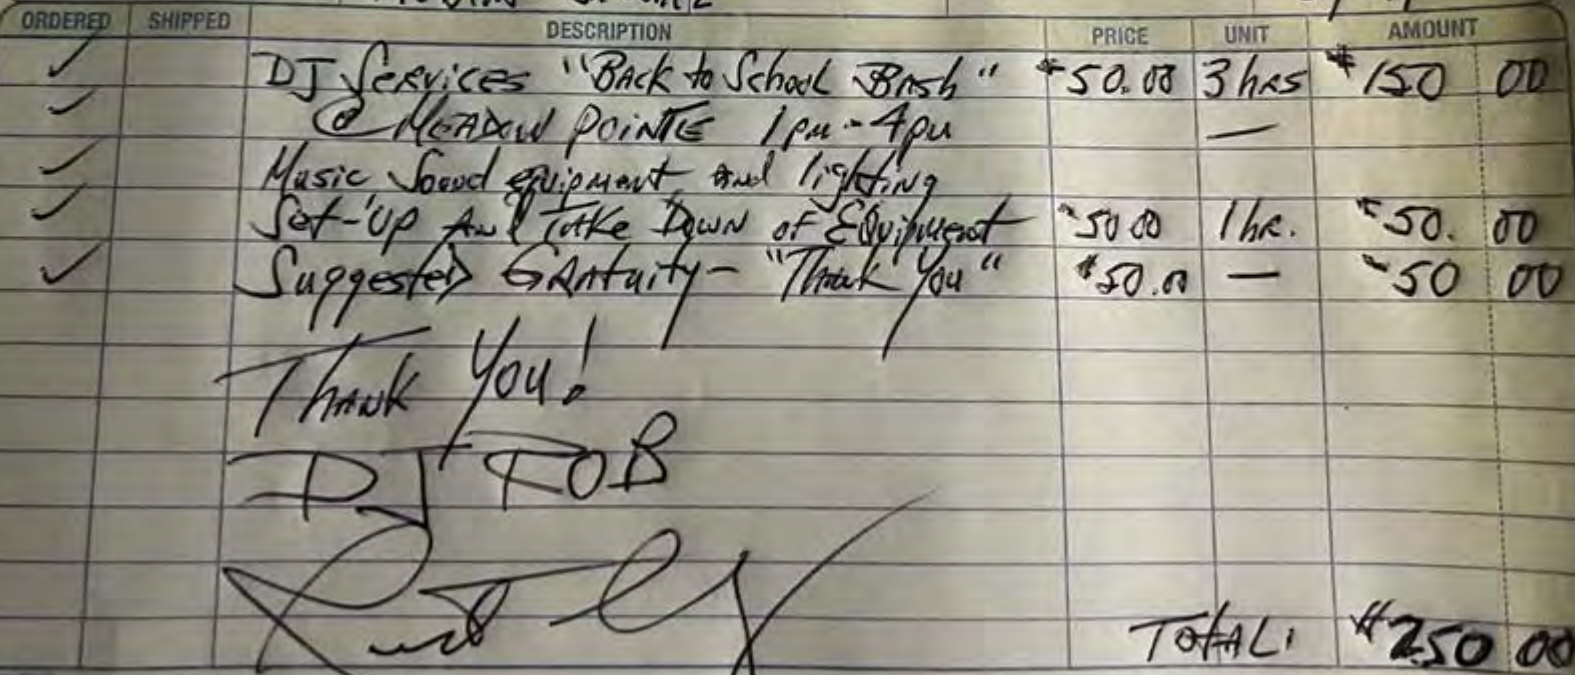 ORDERED SHIPPED DESCRIPTION PRICE UNIT AMOUNT
DJ Services "Back to School Bash" $50.00 3 hrs $150 00
@ MEADOW POINTE 1pm - 4pm —
Music, Sound equipment, and lighting
Set-Up And Take Down of Equipment $50 00 1 hr. $50. 00
Suggested Gratuity - "Thank You" $50.00 — $50 00
Thank You!
DJ ROB
TOTAL: $250 00